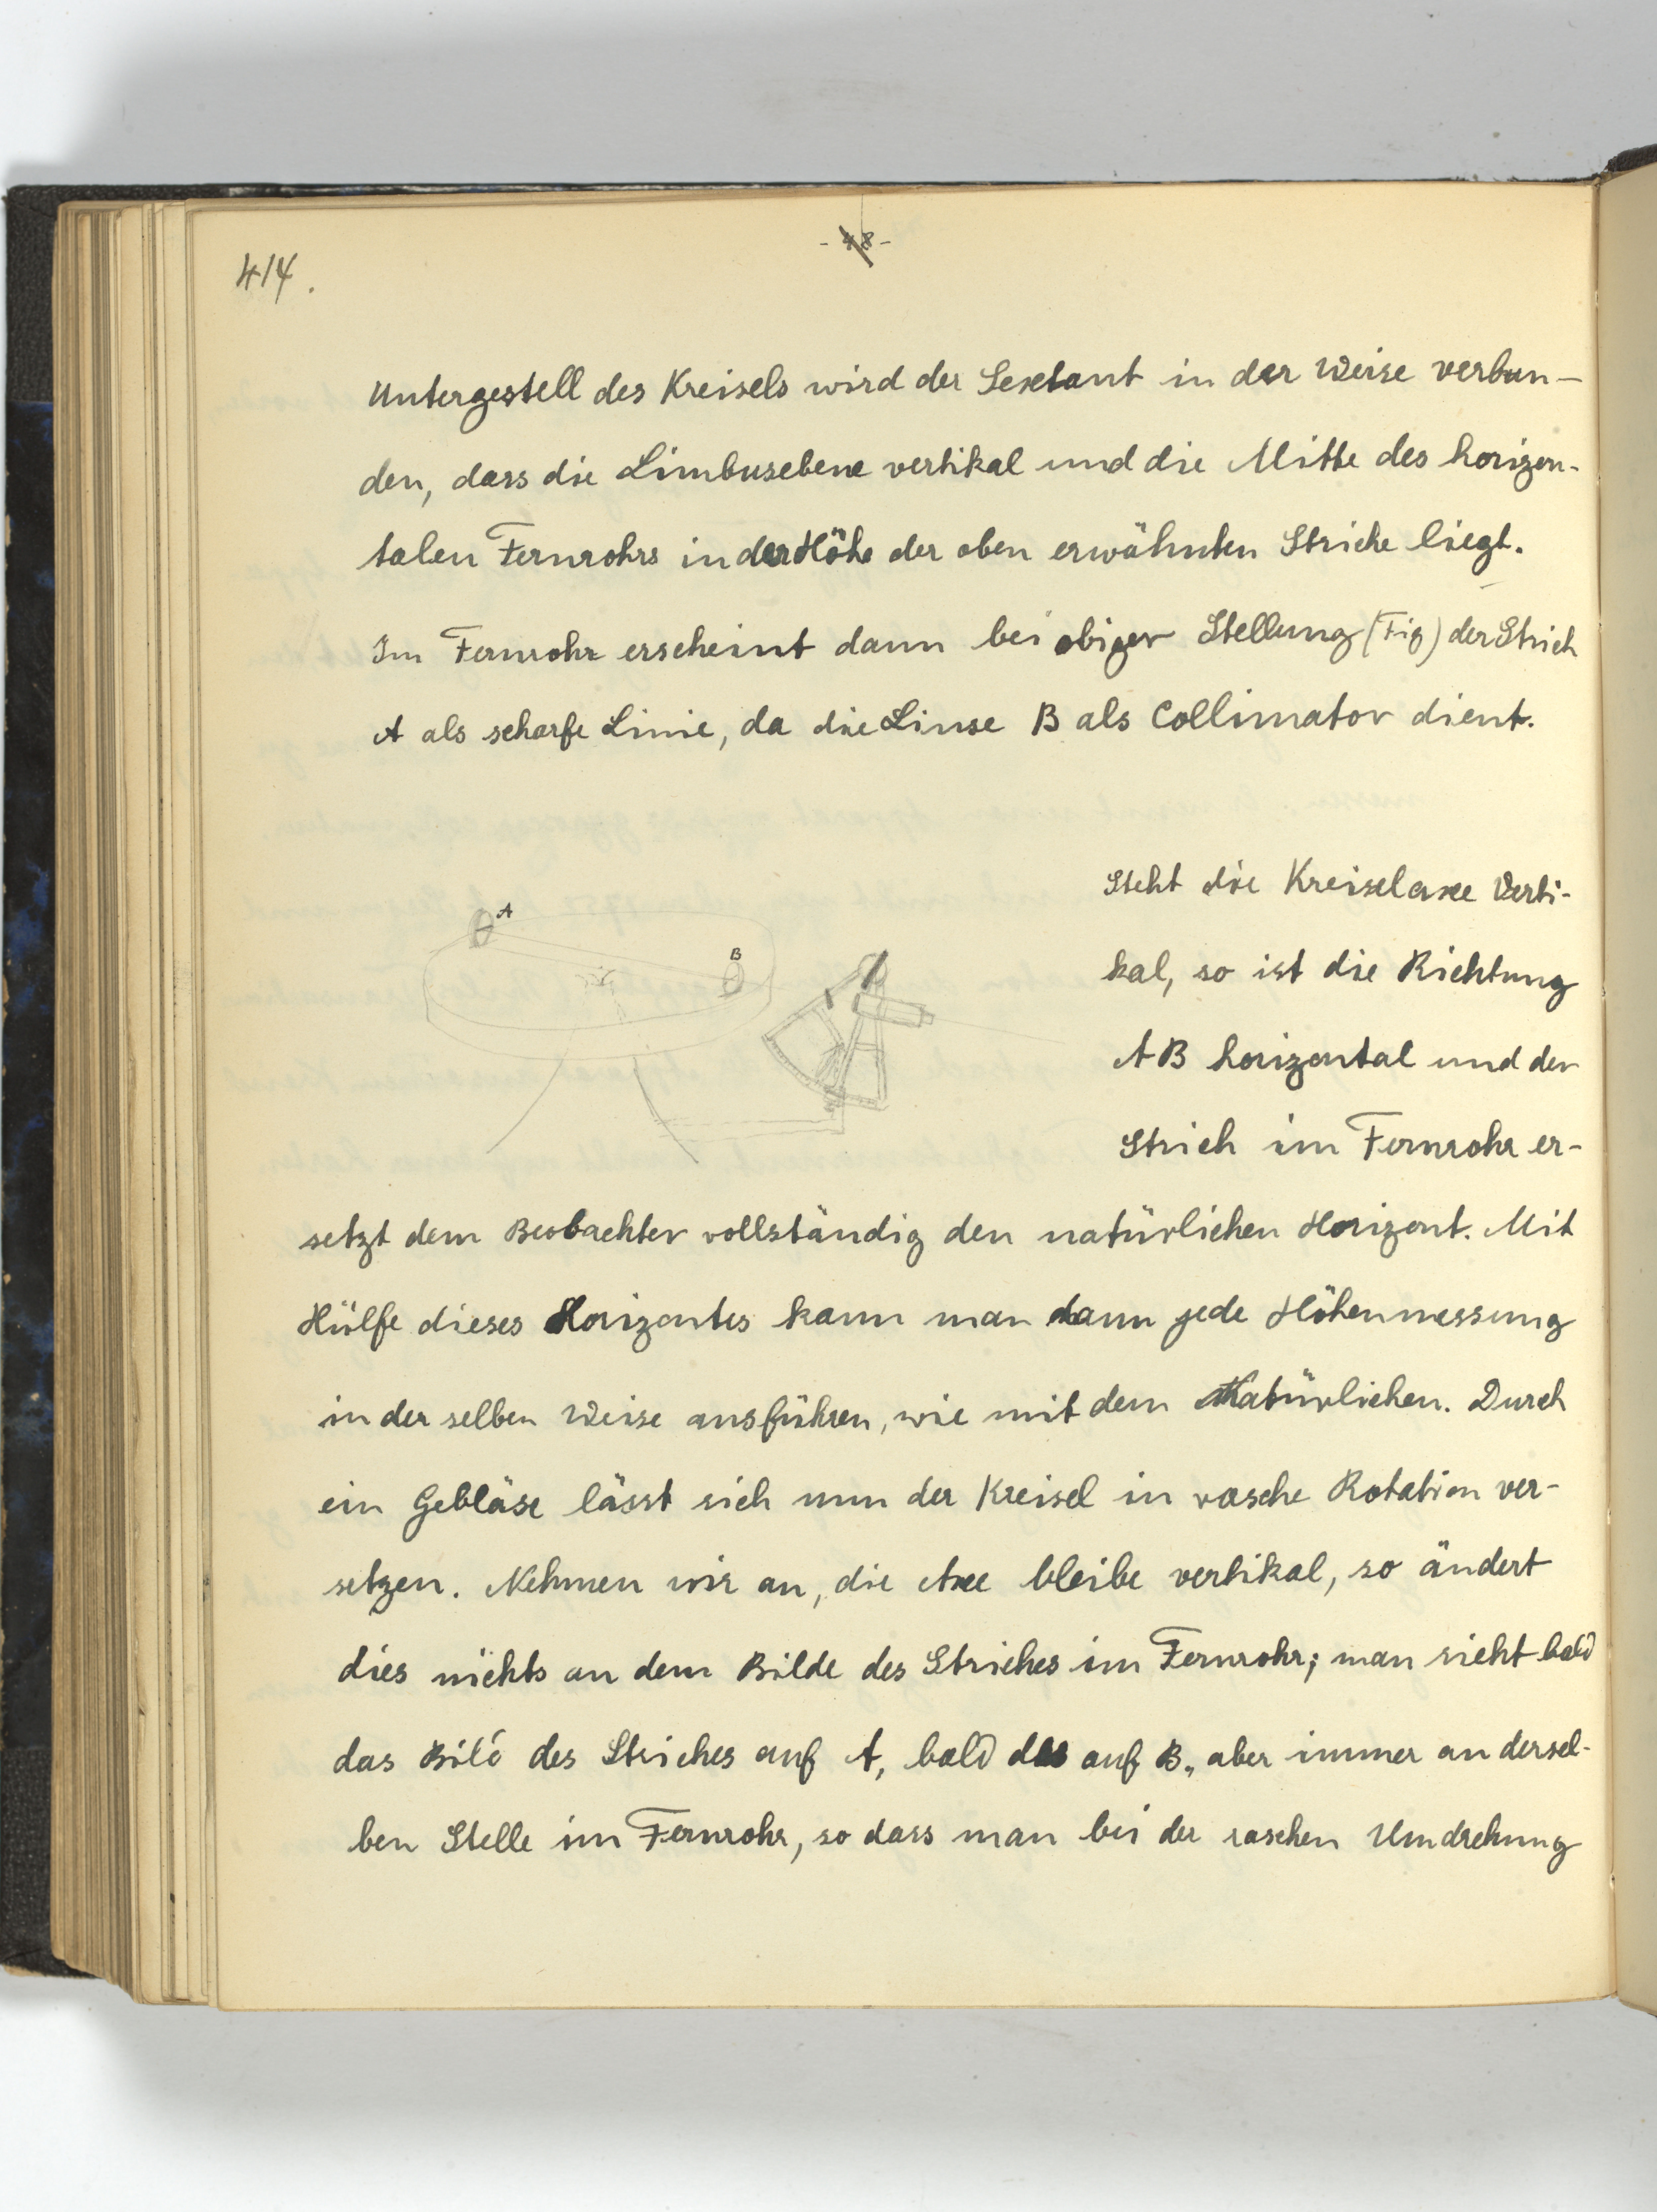 - 48 -
414.
Untergestell des Kreisels wird der Sextant in der Weise verbun-
den, dass die Limbusebene vertikal und die Mitte des horizon-
talen Fernrohrs in der Höhe der oben erwähnten Striche liegt.
Im Fernrohr erscheint dann bei obiger Stellung (Fig) der Strich
A als scharfe Linie, da die Linse B als Collimator dient.
Steht die Kreiselaxe verti-
kal, so ist die Richtung
AB horizontal und der
Strich im Fernrohr er-
A
B
setzt dem Beobachter vollständig den natürlichen Horizont. Mit
Hülfe dieses Horizontes kann man dann jede Höhenmessung
in der selben Weise ausführen, wie mit dem Natürlichen. Durch
ein Gebläse lässt sich nun der Kreisel in rasche Rotation ver-
setzen. Nehmen wir an, die Axe bleibe vertikal, so ändert
dies nichts an dem Bilde des Striches im Fernrohr; man sieht bald
das Bild des Striches auf A, bald das auf B, aber immer an dersel-
ben Stelle im Fernrohr, so dass man bei der raschen Umdrehung